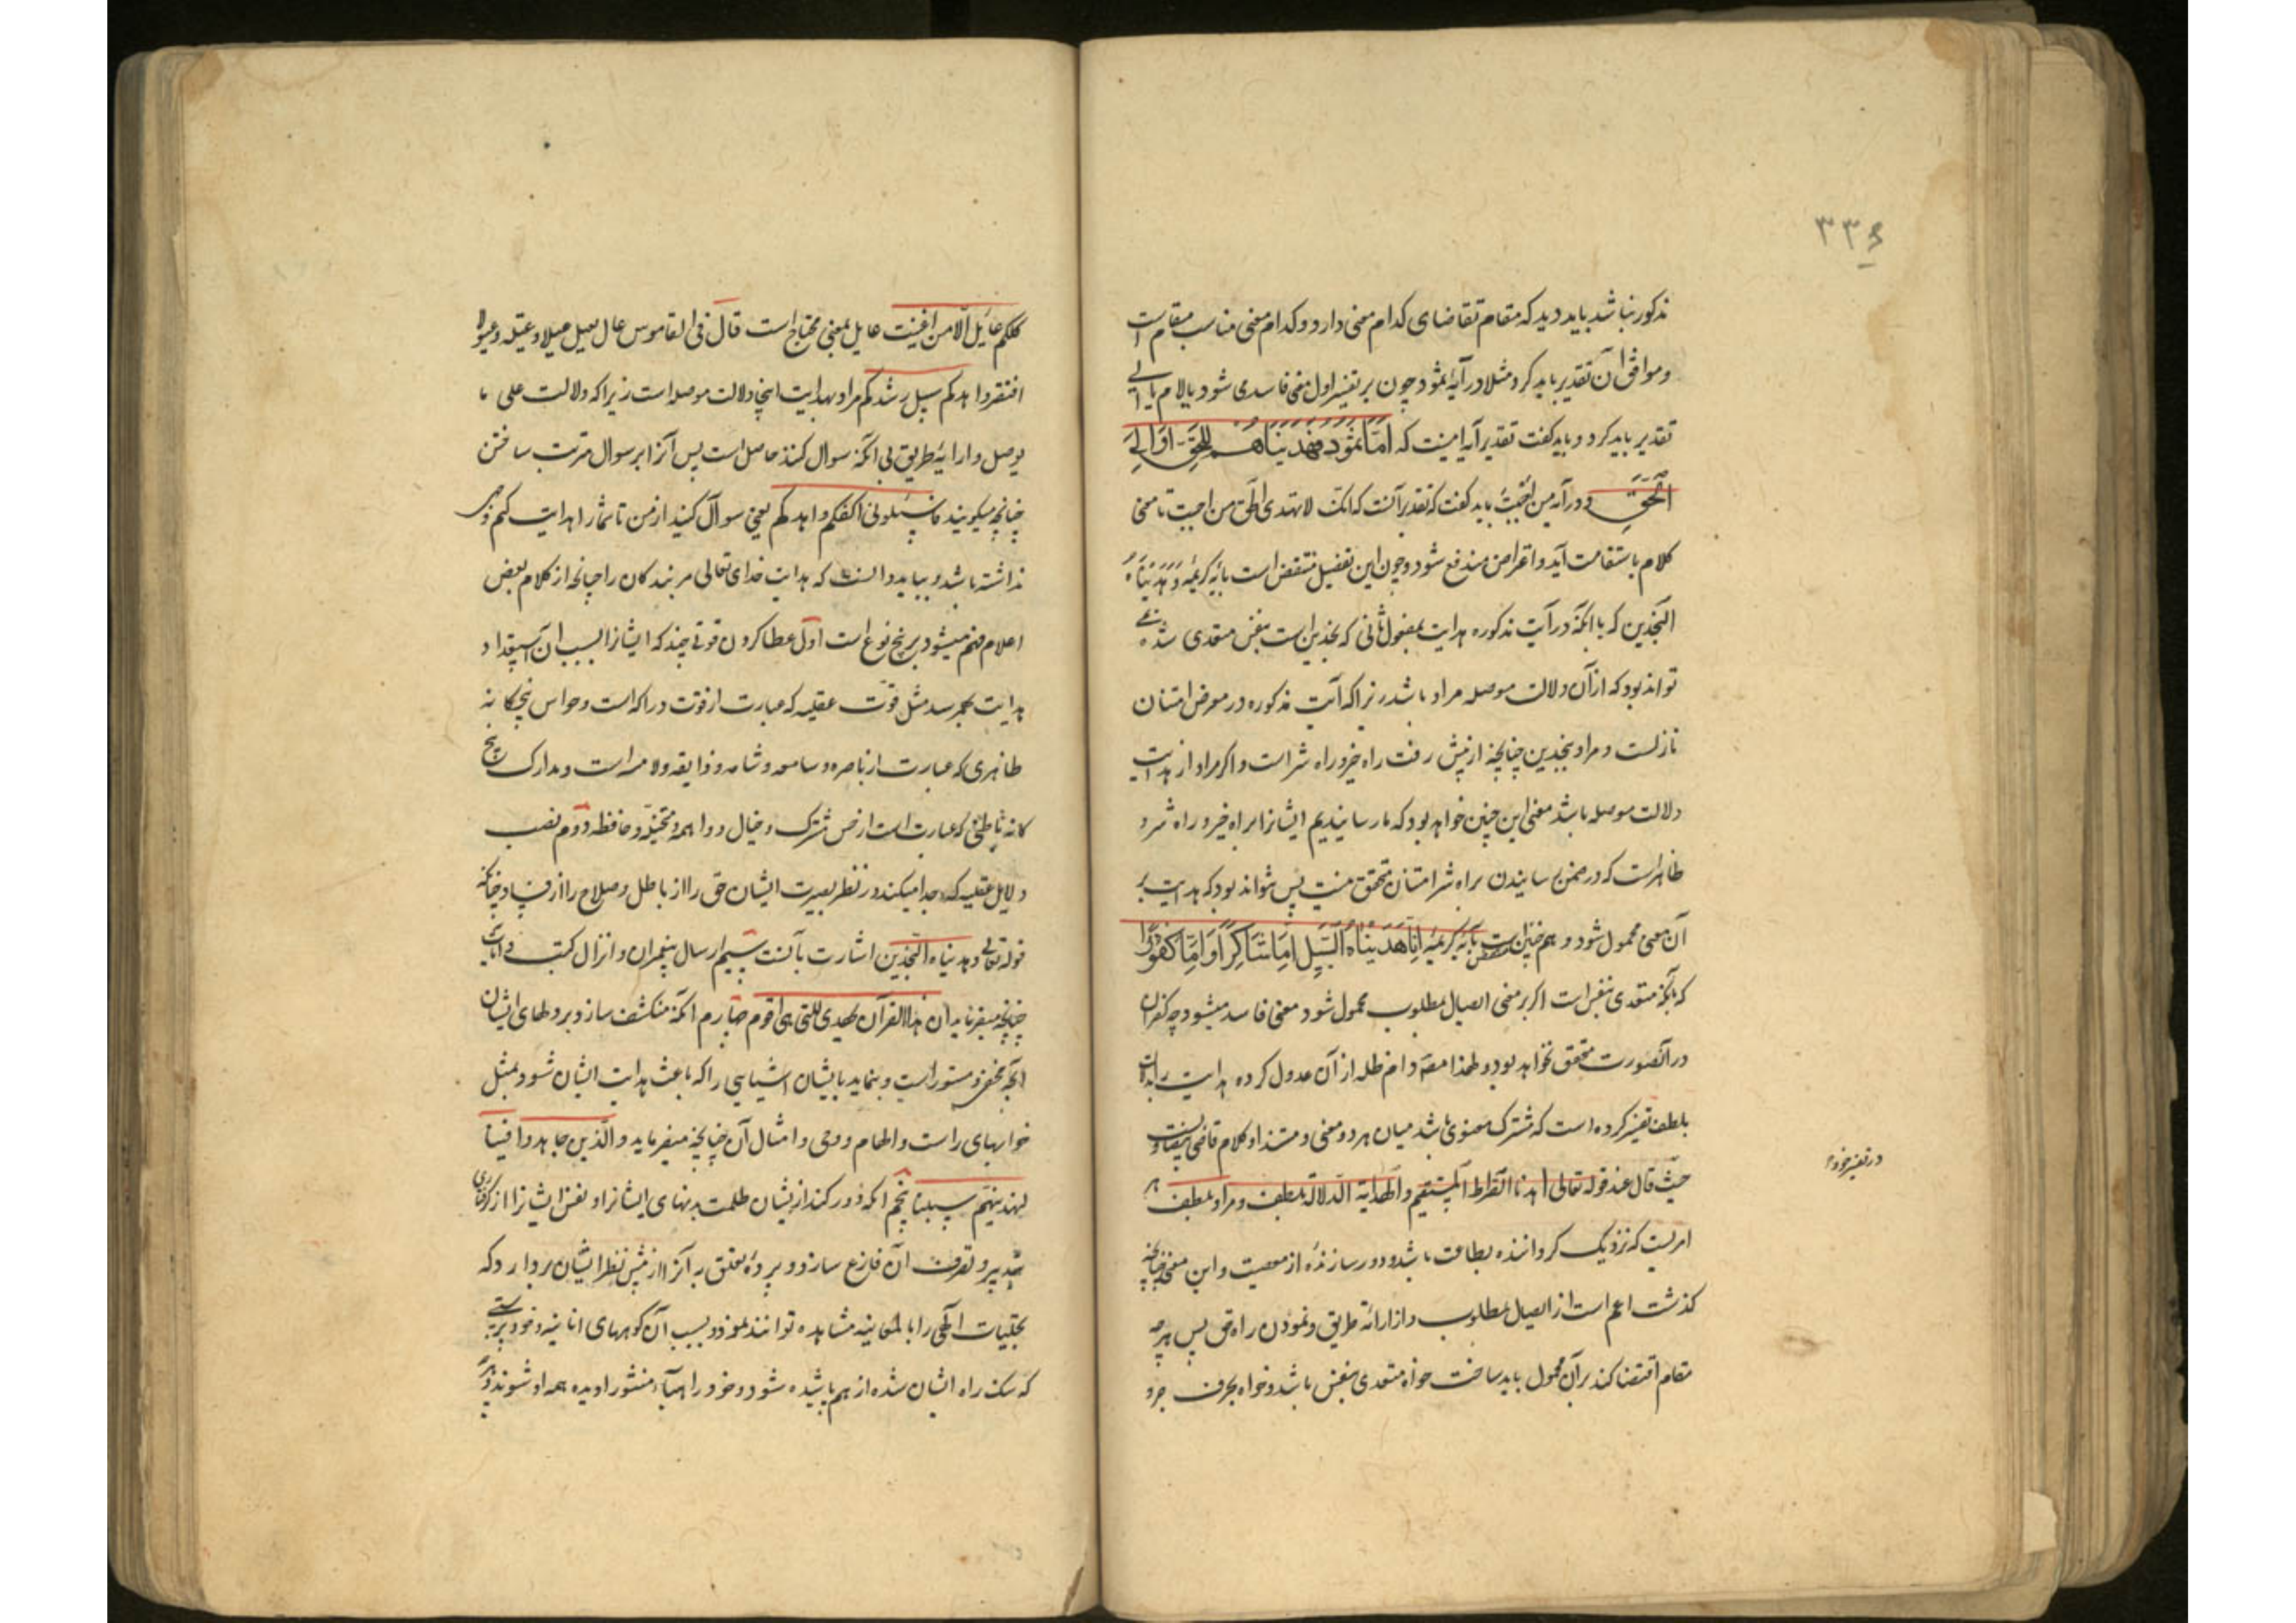 ۳۳۶
مذکور نباشد باید دید که مقام تقاضای کدام معنی دارد و کدام معنی مناسب مقام است
و موافق آن تقدیر باید کرد مثلا در آیۀ ثمود چون بر تفسیر اول معنی فاسد می شود یا لام یا الی
تقدیر باید کرد و باید گفت تقدیر آیه اینست که اَمّا ثَمُود فَهَدَیناهُم لِلحَقِّ اَو اِلَی
الحَقِّ و در آیه من احببت باید گفت که تقدیر آنست که انک لا تهدی الحق من احببت تا معنی
کلام باستقامت آید و اعتراض مندفع شود و چون این تفصیل منتقض است بآیه کریمه و هدیناه
النجدین که با آنکه در آیت مذکوره هدایت بمفعول ثانی که نجدین است بنفس متعدی شده نمی
تواند بود که از آن دلالت موصله مراد باشد زیرا که آیت مذکوره در معرض امتنان
نازلست و مراد بنجدین چنانچه از پیش رفت راه خیر و راه شر است و اگر مراد از هدایت
دلالت موصله باشد معنی این چنین خواهد بود که ما رسانیدیم ایشانرا براه خیر و راه شر و
ظاهر است که در ضمن رسانیدن براه شر امتنان متحقق نیست پس نتواند بود که هدایت بر
آن معنی محمول شود و هم چنین منتقض است بآیه کریمه اِنّا هَدَیناهُ السَّبیلَ اِمّا شاکِراً وَ اِمّا کَفُوراً
که با آنکه متعدی بنفس است اگر بر معنی ایصال مطلوب محمول شود معنی فاسد میشود چه کفران
در آنصورت متحقق نخواهد بود و لهذا مصنف دام ظله از آن عدول کرده هدایت را بدلالت
بلطف تفسیر کرده است که مشترک معنوی باشد میان هر دو معنی و مستند او کلام قاضی بیضاویست
در تفسیر خود
حیث قال عند قوله تعالی اهدنا الصراط المستقیم والهدایة الدلالة بلطف و مراد بلطف هر
امریست که نزدیک گرداننده بطاعت باشد و دور سازنده از معصیت و این معنی چنانچه
گذشت اعم است از ایصال مطلوب و از ارائۀ طریق و نمودن راه حق پس هر چه
مقام اقتضا کند بر آن محمول باید ساخت خواه متعدی بنفس باشد و خواه بحرف جر و
کلکم عایل الا من اغنیت عایل بمعنی محتاج است قال فی القاموس عال یعیل عیلا و عیلة و عیولا
افتقر و اهدکم سبل رشدکم مراد بهدایت اینجا دلالت موصله است زیرا که دلالت علی ما
یوصل و ارایۀ طریق بی آنکه سوال کنند حاصل است پس آنرا بر سوال مترتب ساختن
چنانچه میگویند فاسئلونی اکفکم و اهدکم یعنی سوال کنید از من تا شما را هدایت کنم وجهی
نداشته باشد و بباید دانست که هدایت خدای تعالی مر بندگان را چنانچه از کلام بعض
اعلام فهم میشود بر پنج نوع است اول عطا کردن قوتی چند که ایشانرا بسبب آن استعداد
هدایت بهم رسد مثل قوت عقلیه که عبارت از قوت دراکه است و حواس پنجگانه
ظاهری که عبارت از باصره و سامعه و شامه و ذایقه و لامسه است و مدارک پنج
گانه باطنی که عبارت است از حس مشترک و خیال و واهمه و متخیله و حافظه دوم نصب
دلایل عقلیه که جدا میکند در نظر بصیرت ایشان حق را از باطل و صلاح را از فساد چنانکه
قوله تعالی و هدیناه النجدین اشارت بآنست سیم ارسال پیغمبران و انزال کتب
چنانچه میفرماید ان هذا القرآن یهدی للتی هی اقوم چهارم آنکه منکشف سازد بر دلهای ایشان
آنچه مخفی و مستور است و بنماید بایشان اشیایی را که باعث هدایت ایشان شود بمثل
خوابهای راست و الهام و وحی و امثال آن چنانچه میفرماید و الذین جاهدوا فینا
لنهدینهم سبلنا پنجم آنکه دور کند از ایشان ظلمت بدنهای ایشانرا و نفس ایشانرا از گرفتاری
تدبیر و تصرف آن فارغ سازد و پردۀ تعلق به آنرا از پیش نظر ایشان بردارد که
تجلیات الهی را بالمعاینه مشاهده توانند نمود و بسبب آن کوههای انانیه و خودپرستی
که سنگ راه ایشان شده از هم پاشیده شود و خود را هباء منثورا دیده همه او شوند و